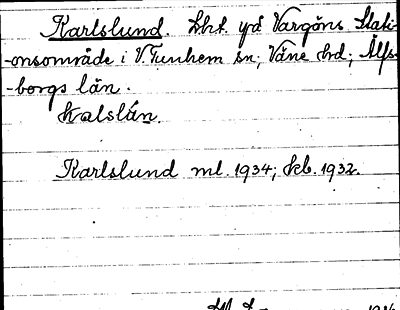 Karlslund. Lht. på Vargöns Stati-
-onsområde i V. Tunhem sn; Väne hd; Älfs-
-borgs län.
kalslún.
Karlslund ml. 1934; kb. 1932.